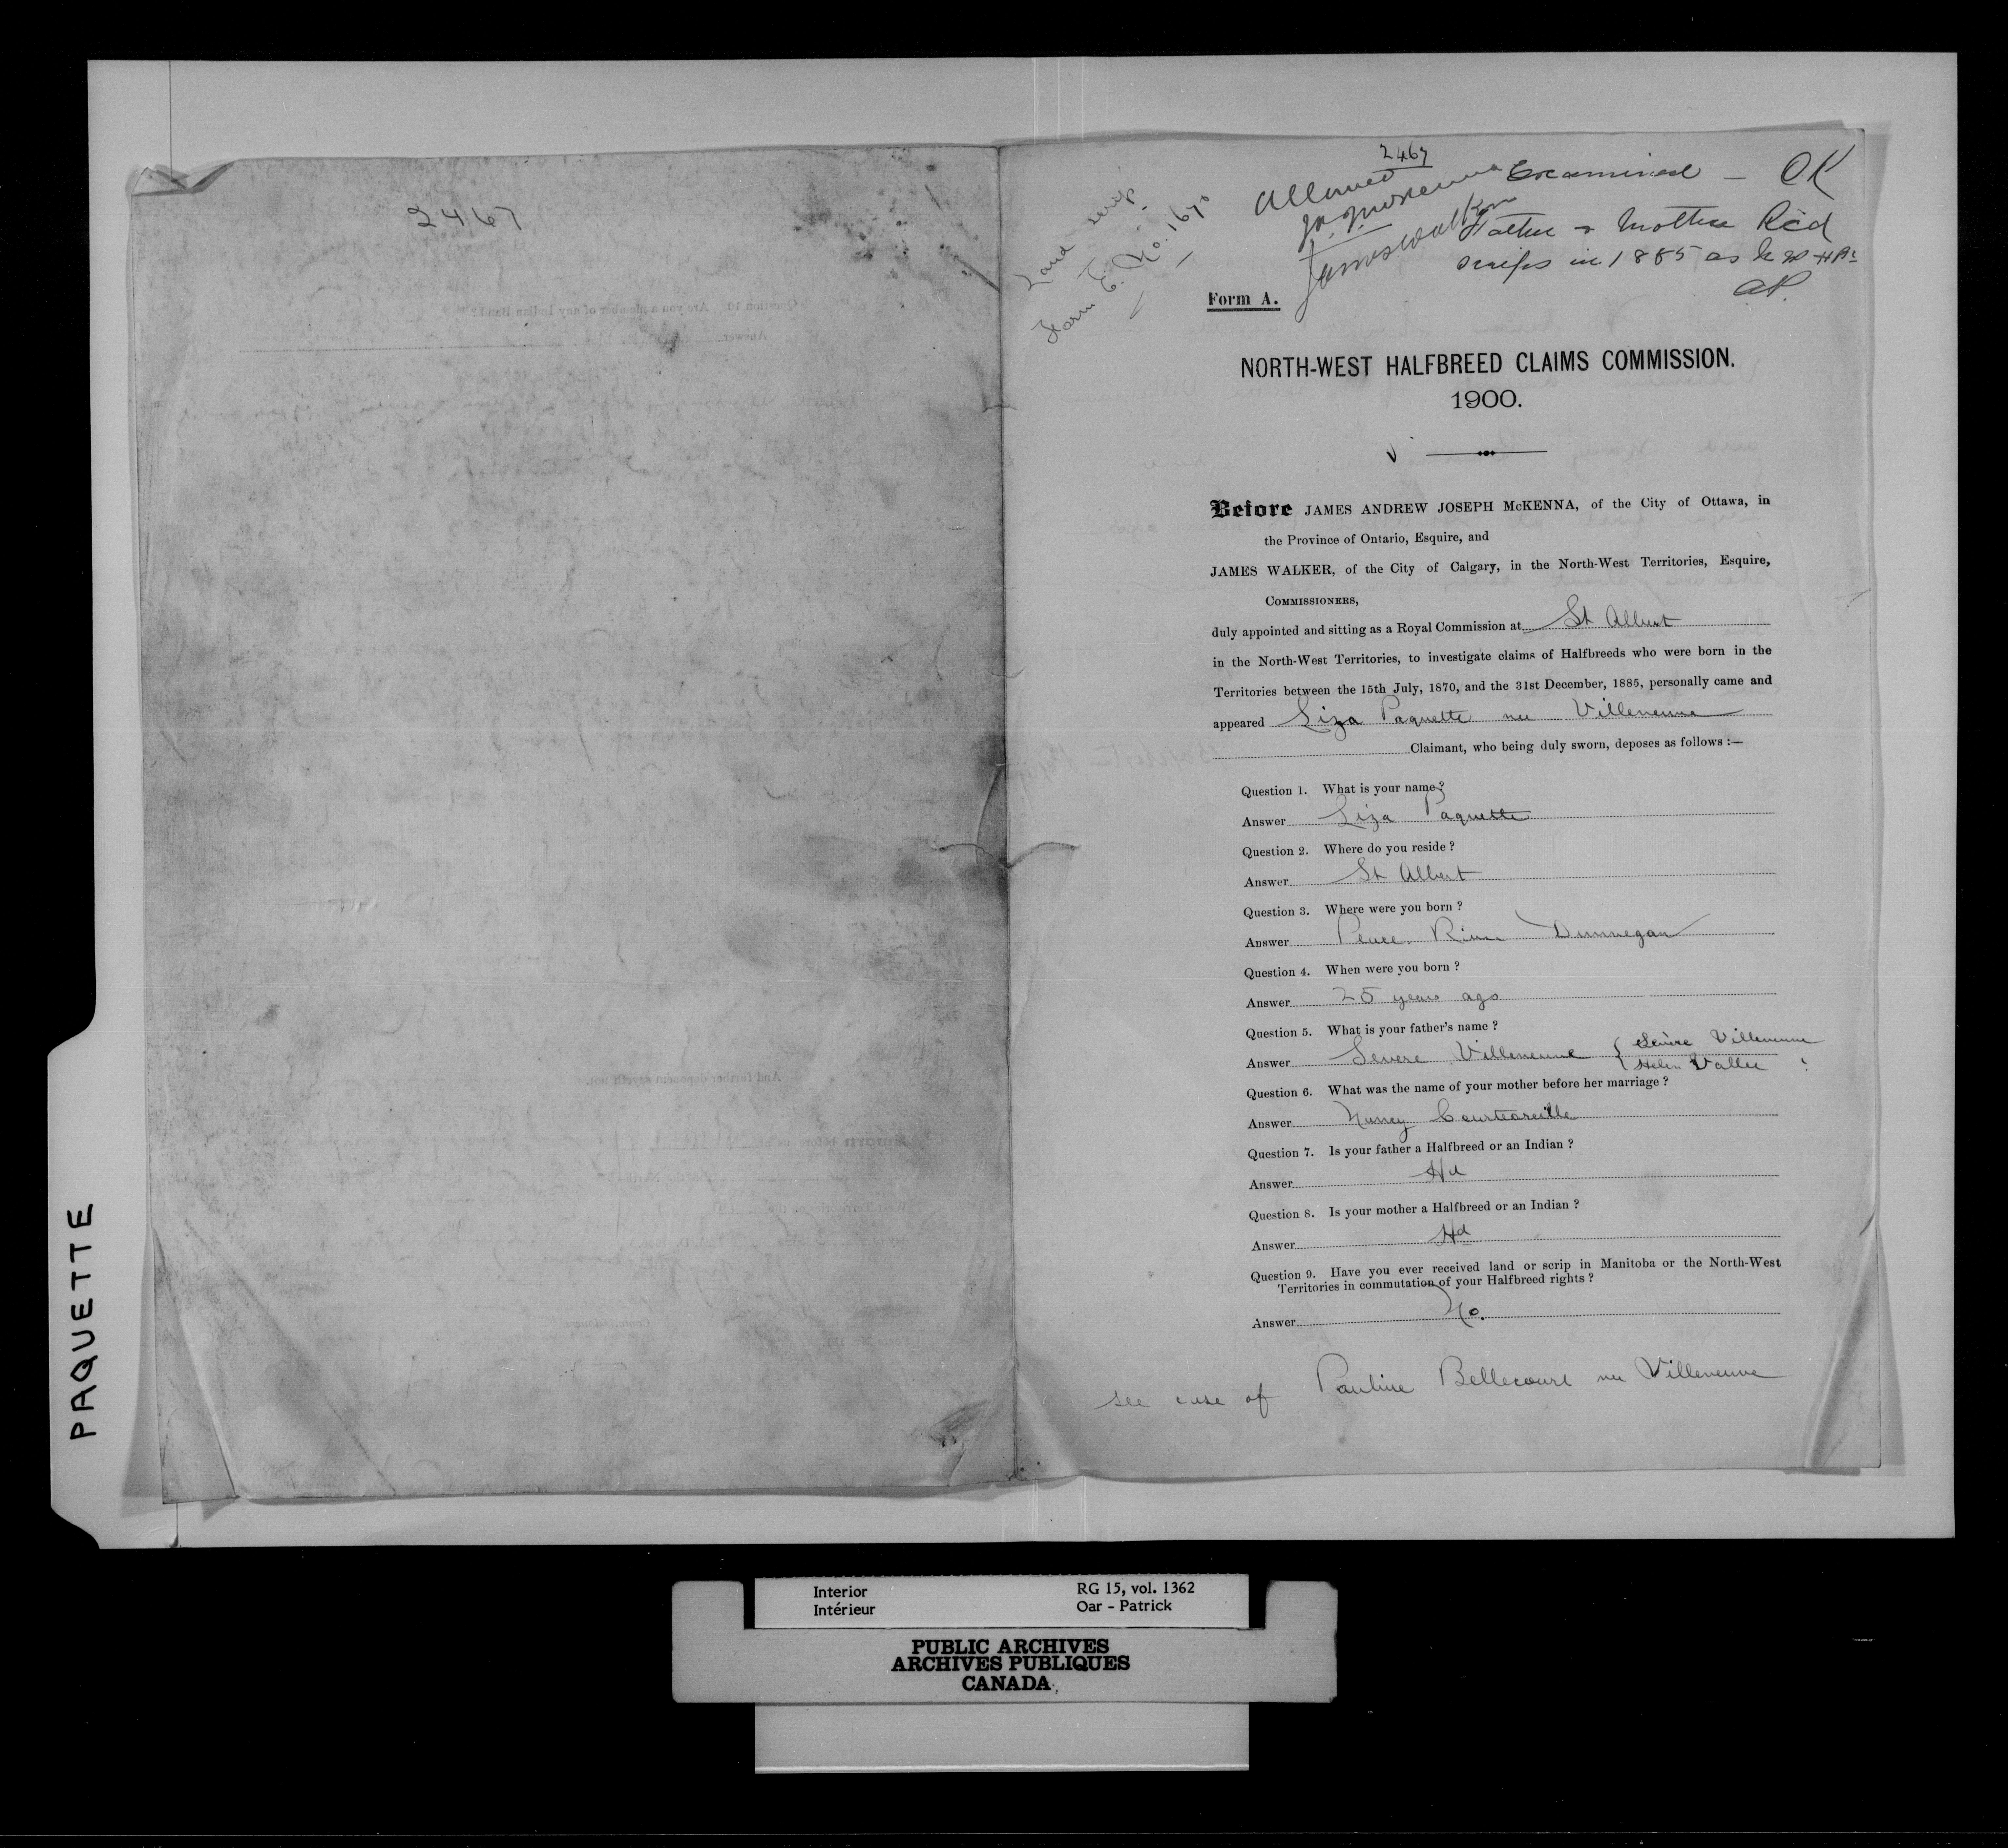 PAQUETTE
2467
Question 10. Are you a member of any Indian Band?
Answer
And further deponent sayeth not.
2467
Land scrip
Form E. No. 1670
Allowed
J. A. J. McKenna
James Walker
Examined — OK
Father & Mother Rec'd
scrips in 1885 as N W H Bs
Form A.
NORTH-WEST HALFBREED CLAIMS COMMISSION.
1900.
Before JAMES ANDREW JOSEPH McKENNA, of the City of Ottawa, in
the Province of Ontario, Esquire, and
JAMES WALKER, of the City of Calgary, in the North-West Territories, Esquire,
COMMISSIONERS,
duly appointed and sitting as a Royal Commission at St Albert
in the North-West Territories, to investigate claims of Halfbreeds who were born in the
Territories between the 15th July, 1870, and the 31st December, 1885, personally came and
appeared Liza Paquette nee Villeneuve
Claimant, who being duly sworn, deposes as follows :—
Question 1. What is your name?
Answer Liza Paquette
Question 2. Where do you reside ?
Answer St Albert
Question 3. Where were you born ?
Answer Peace River Dunnegan
Question 4. When were you born ?
Answer 25 years ago
Question 5. What is your father's name ?
Answer Severe Villeneuve { Sévère Villeneuve
Helen Vallee
Question 6. What was the name of your mother before her marriage ?
Answer Nancy Courtoreille
Question 7. Is your father a Halfbreed or an Indian ?
Answer Hd
Question 8. Is your mother a Halfbreed or an Indian ?
Answer Hd
Question 9. Have you ever received land or scrip in Manitoba or the North-West
Territories in commutation of your Halfbreed rights ?
Answer No.
see case of Pauline Bellecourt nee Villeneuve
Interior
Intérieur
RG 15, vol. 1362
Oar - Patrick
PUBLIC ARCHIVES
ARCHIVES PUBLIQUES
CANADA